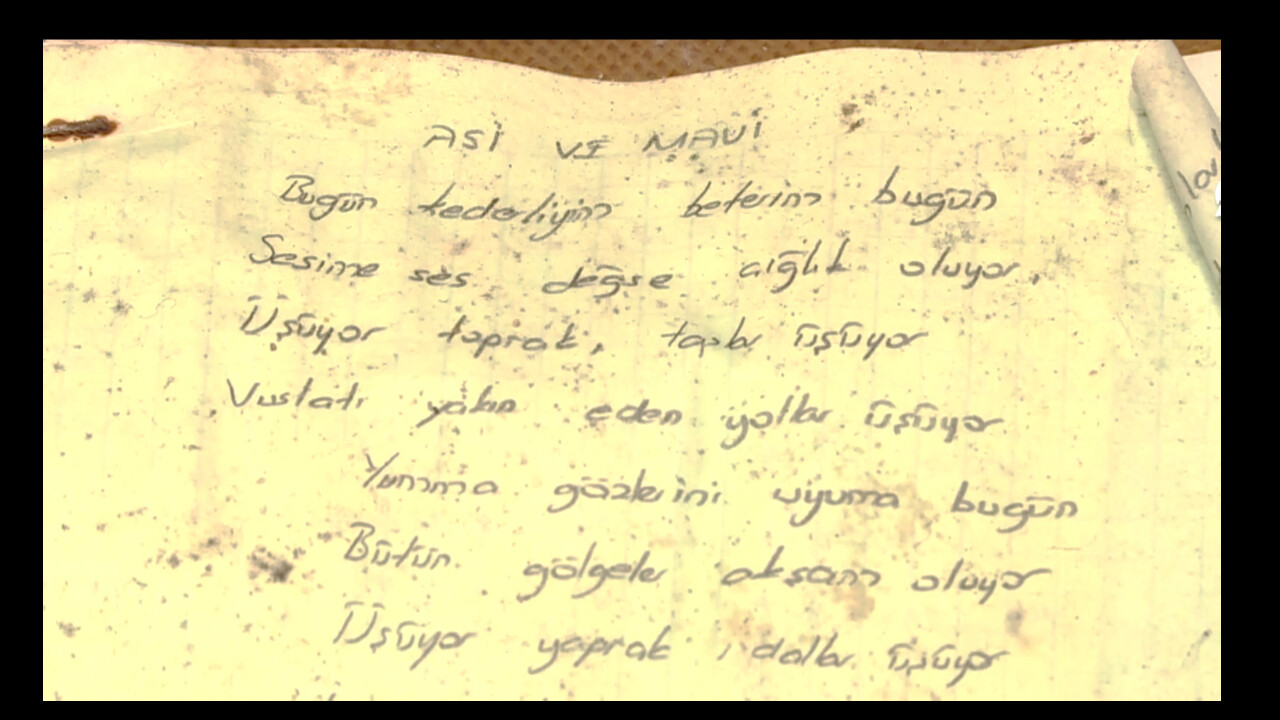 ASİ VE MAVİ
Bugün kederliyim beterim bugün
Sesime ses değse çığlık oluyor,
Üşüyor toprak, taşlar üşüyor
Vuslatı yakın eden yollar üşüyor
Yumma gözlerini uyuma bugün
Bütün gölgeler akşam oluyor
Üşüyor yaprak, dallar üşüyor